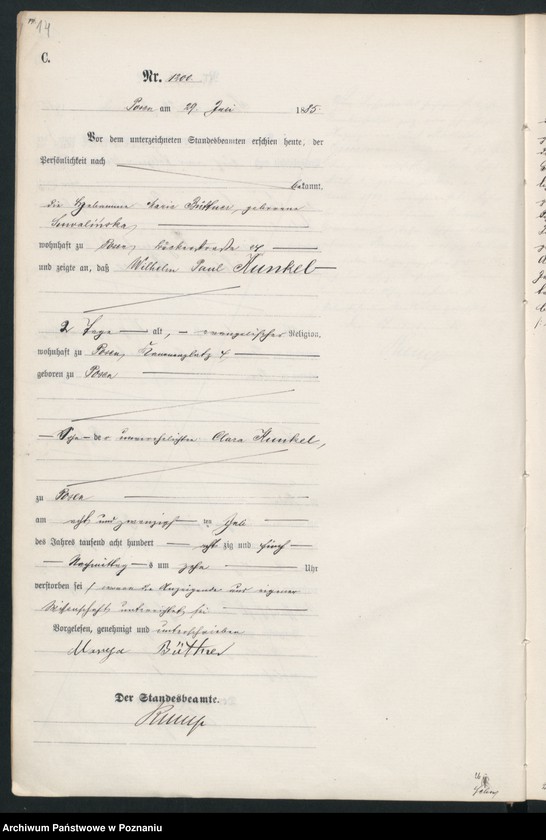 14
C.
Nr. 1200
Posen am 29 Juli 1885.
Vor dem unterzeichneten Standesbeamten erschien heute, der
Persönlichkeit nach
bekannt,
die Hebamme Marie Büttner, geborene
wohnhaft zu Posen, Bäckerstraße
und zeigte an, daß Wilhelm Paul Kunkel
2 Tage alt, evangelischer Religion,
wohnhaft zu Posen, Kanonenplatz
geboren zu Posen
Sohn der unverehelichten Clara Kunkel,
zu Posen
am acht und zwanzigsten Juli
des Jahres tausend acht hundert achtzig und fünf
Nachmittags um zehn Uhr
verstorben sei, wovon die Anzeigende aus eigener
Wissenschaft unterrichtet sei
Vorgelesen, genehmigt und unterschrieben
Marya Büttner
Der Standesbeamte.
Archiwum Państwowe w Poznaniu